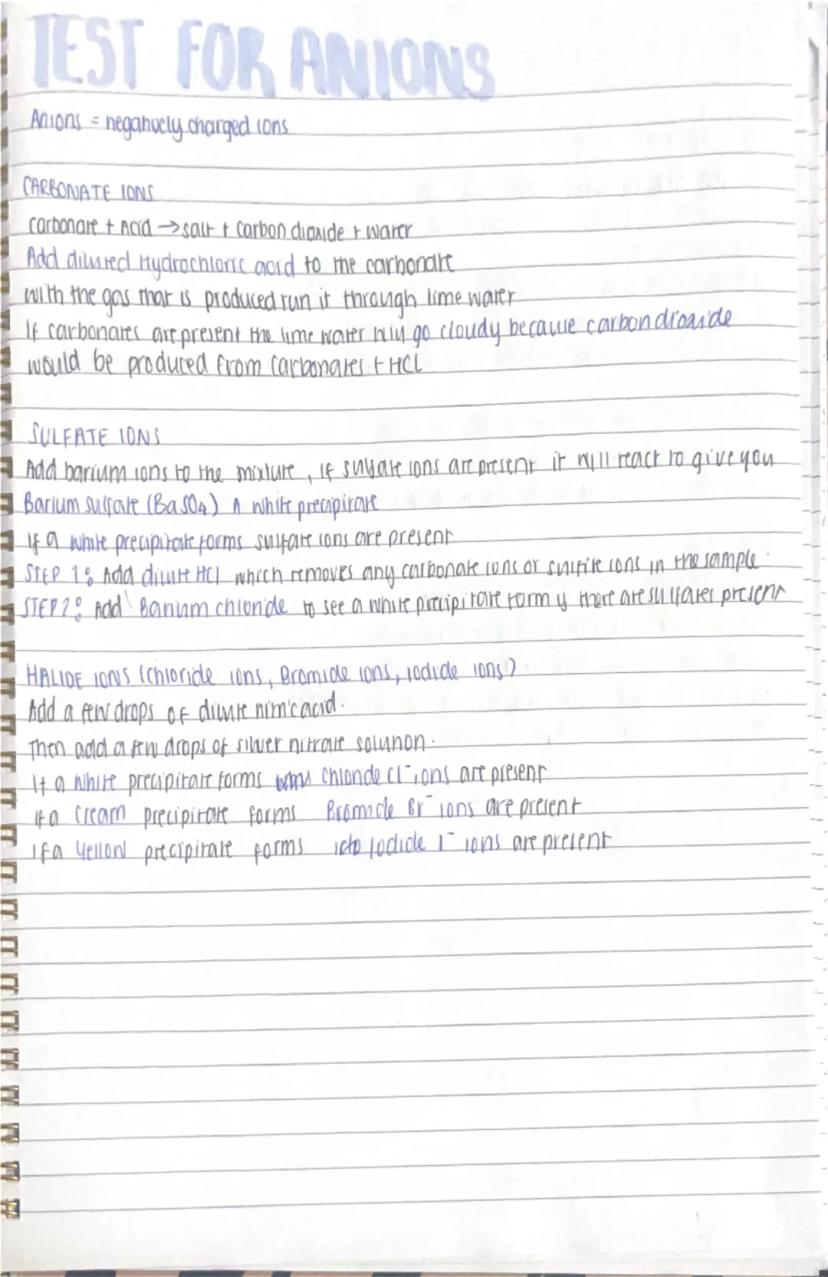 TEST FOR ANIONS
Anions = negatively charged ions
CARBONATE IONS
carbonate + Acid → salt + carbon dioxide + water
Add diluted Hydrochloric acid to the carbonate
with the gas that is produced run it through lime water
If carbonates are present the lime water will go cloudy because carbon dioxide
would be produced from carbonates + HCl
SULFATE IONS
Add barium ions to the mixture, if sulfate ions are present it will react to give you
Barium sulfate (BaSO4) A white precipitate
if a white precipitate forms sulfate ions are present
STEP 1: Add dilute HCl which removes any carbonate ions or sulfite ions in the sample.
STEP 2: Add Barium chloride to see a white precipitate form if there are sulfates present
HALIDE IONS (chloride ions, Bromide ions, iodide ions)
Add a few drops of dilute nitric acid.
Then add a few drops of silver nitrate solution.
If a white precipitate forms chloride Cl⁻ ions are present
if a cream precipitate forms Bromide Br⁻ ions are present
if a yellow precipitate forms iodide I⁻ ions are present